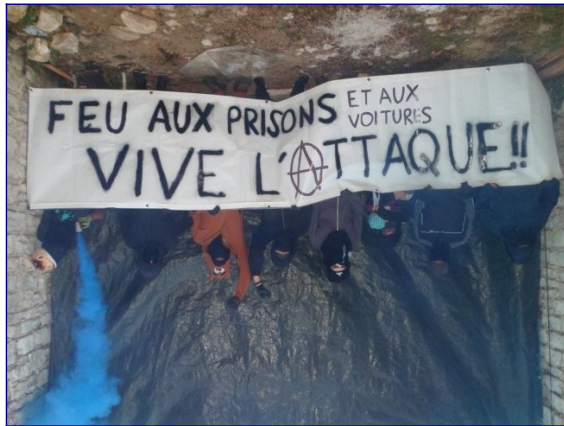 FEU AUX PRISONS ET AUX VOITURES
VIVE L'ATTAQUE!!